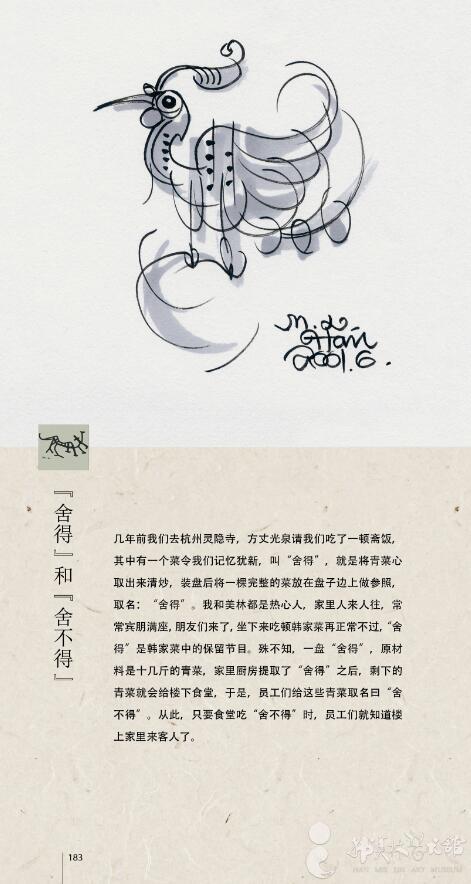 M.L.
Han
2001.6.
『舍得』和『舍不得』
几年前我们去杭州灵隐寺，方丈光泉请我们吃了一顿斋饭，
其中有一个菜令我们记忆犹新，叫“舍得”，就是将青菜心
取出来清炒，装盘后将一棵完整的菜放在盘子边上做参照，
取名：“舍得”。我和美林都是热心人，家里人来人往，常
常宾朋满座，朋友们来了，坐下来吃顿韩家菜再正常不过，“舍
得”是韩家菜中的保留节目。殊不知，一盘“舍得”，原材
料是十几斤的青菜，家里厨房提取了“舍得”之后，剩下的
青菜就会给楼下食堂，于是，员工们给这些青菜取名曰“舍
不得”。从此，只要食堂吃“舍不得”时，员工们就知道楼
上家里来客人了。
183
韩美林艺术馆
HAN MEI LIN ART MUSEUM